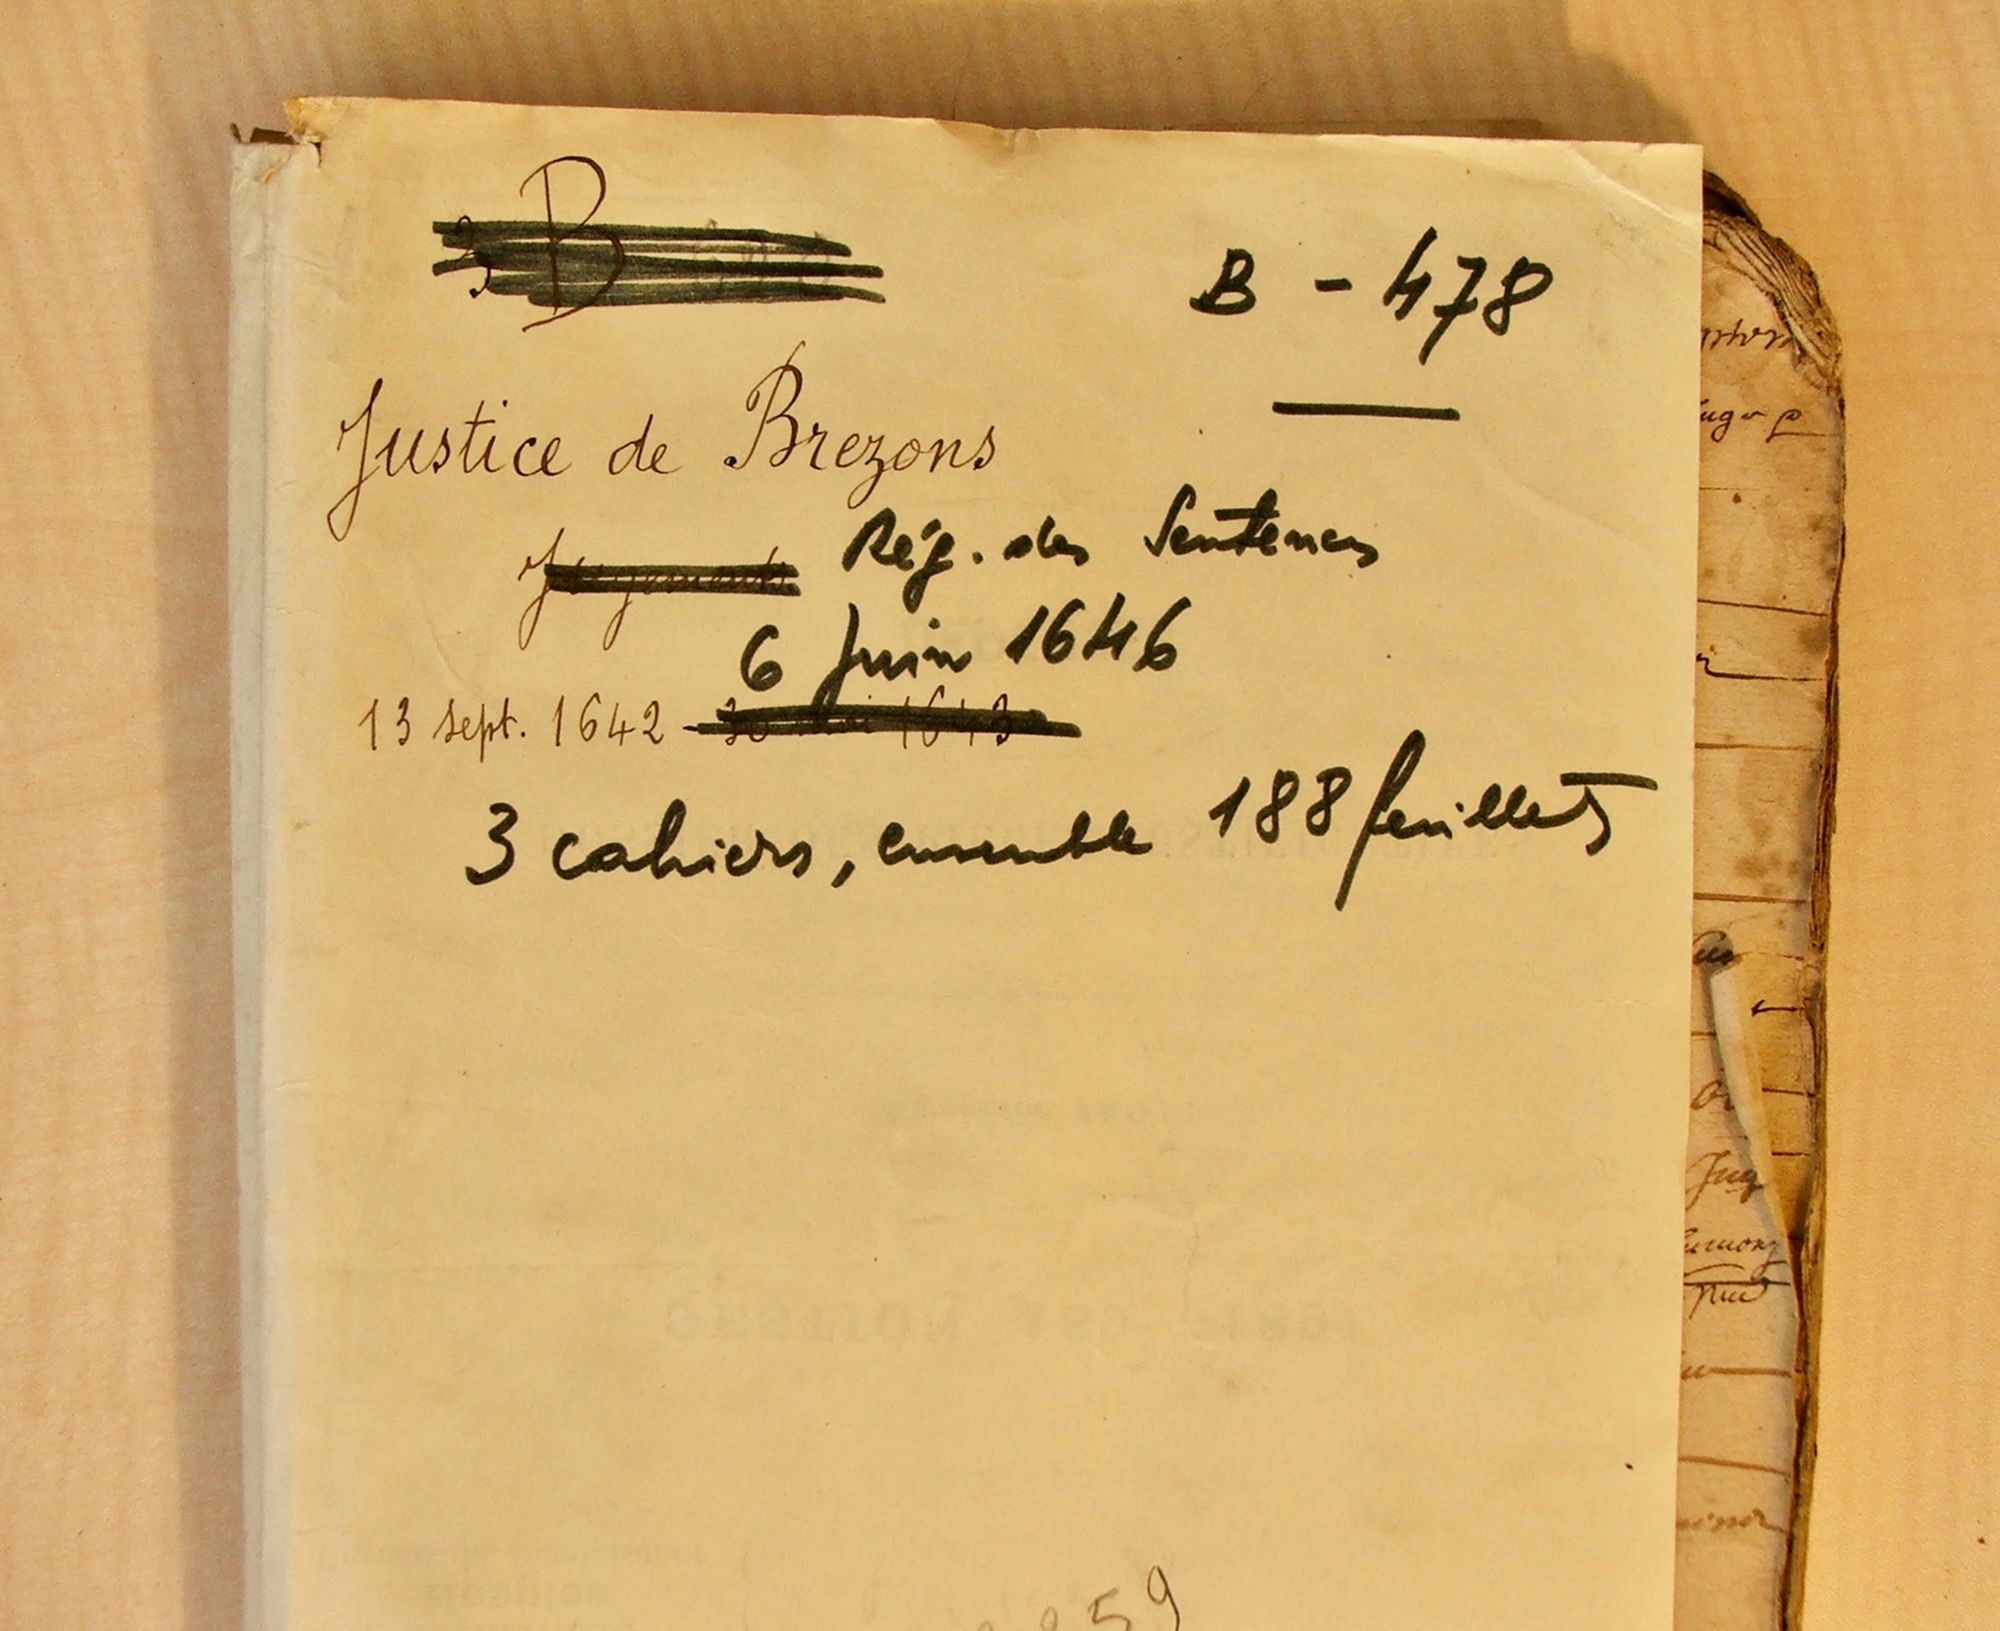 3 B
B - 478
Justice de Brezons
Jugements Rég. des Sentences
6 Juin 1646
13 sept. 1642 - 30 mai 1643
3 cahiers, ensemble 188 feuillets
59